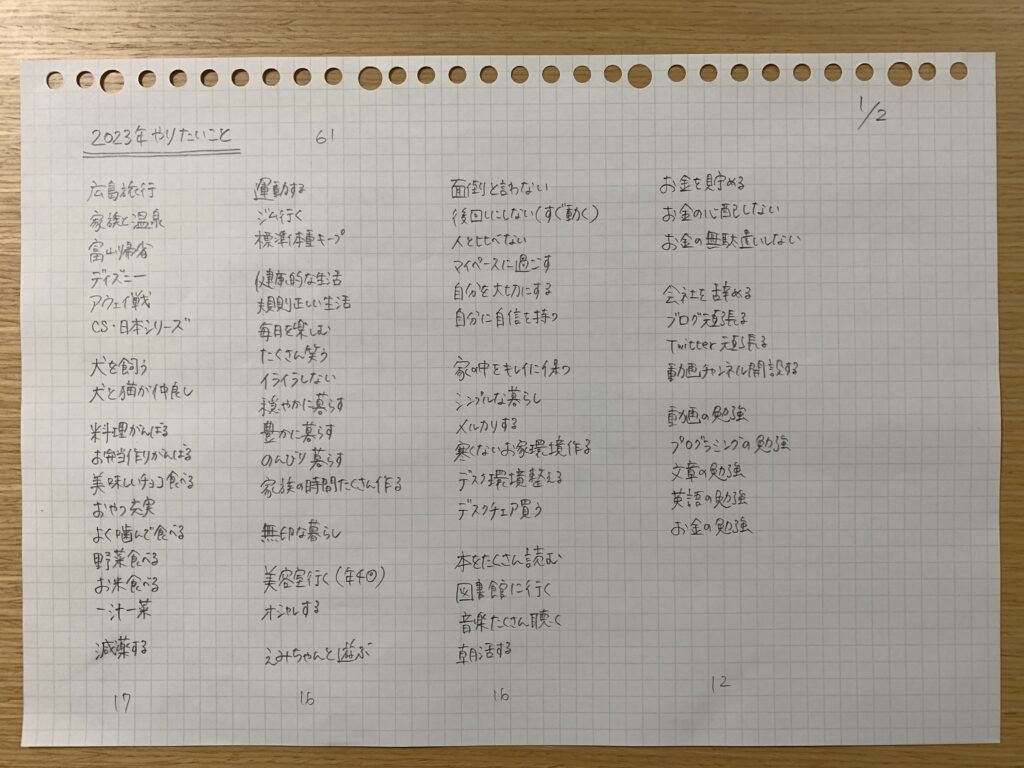 1/2
2023年やりたいこと 61
広島旅行
家族と温泉
富山帰省
ディズニー
アウェイ戦
CS・日本シリーズ
犬を飼う
犬と猫が仲良し
料理がんばる
お弁当作りがんばる
美味しいチョコ食べる
おやつ充実
よく噛んで食べる
野菜食べる
お米食べる
一汁一菜
減薬する
17
運動する
ジム行く
標準体重キープ
健康的な生活
規則正しい生活
毎日を楽しむ
たくさん笑う
イライラしない
穏やかに暮らす
豊かに暮らす
のんびり暮らす
家族の時間たくさん作る
無印な暮らし
美容室行く(年4回)
オシャレする
えみちゃんと遊ぶ
16
面倒と言わない
後回しにしない(すぐ動く)
人と比べない
マイペースに過ごす
自分を大切にする
自分に自信を持つ
家の中をキレイに保つ
シンプルな暮らし
メルカリする
寒くないお家環境作る
デスク環境整える
デスクチェア買う
本をたくさん読む
図書館に行く
音楽たくさん聴く
朝活する
16
お金を貯める
お金の心配しない
お金の無駄遣いしない
会社を辞める
ブログ頑張る
Twitter頑張る
動画チャンネル開設する
動画の勉強
プログラミングの勉強
文章の勉強
英語の勉強
お金の勉強
12